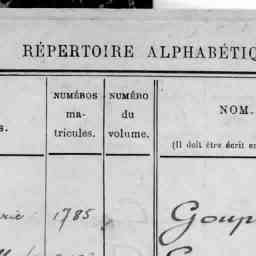 RÉPERTOIRE ALPHABÉTIQ
NUMÉROS
ma-
tricules.
NUMÉRO
du
volume.
NOM.
(Il doit être écrit e
s.
1785
Goup